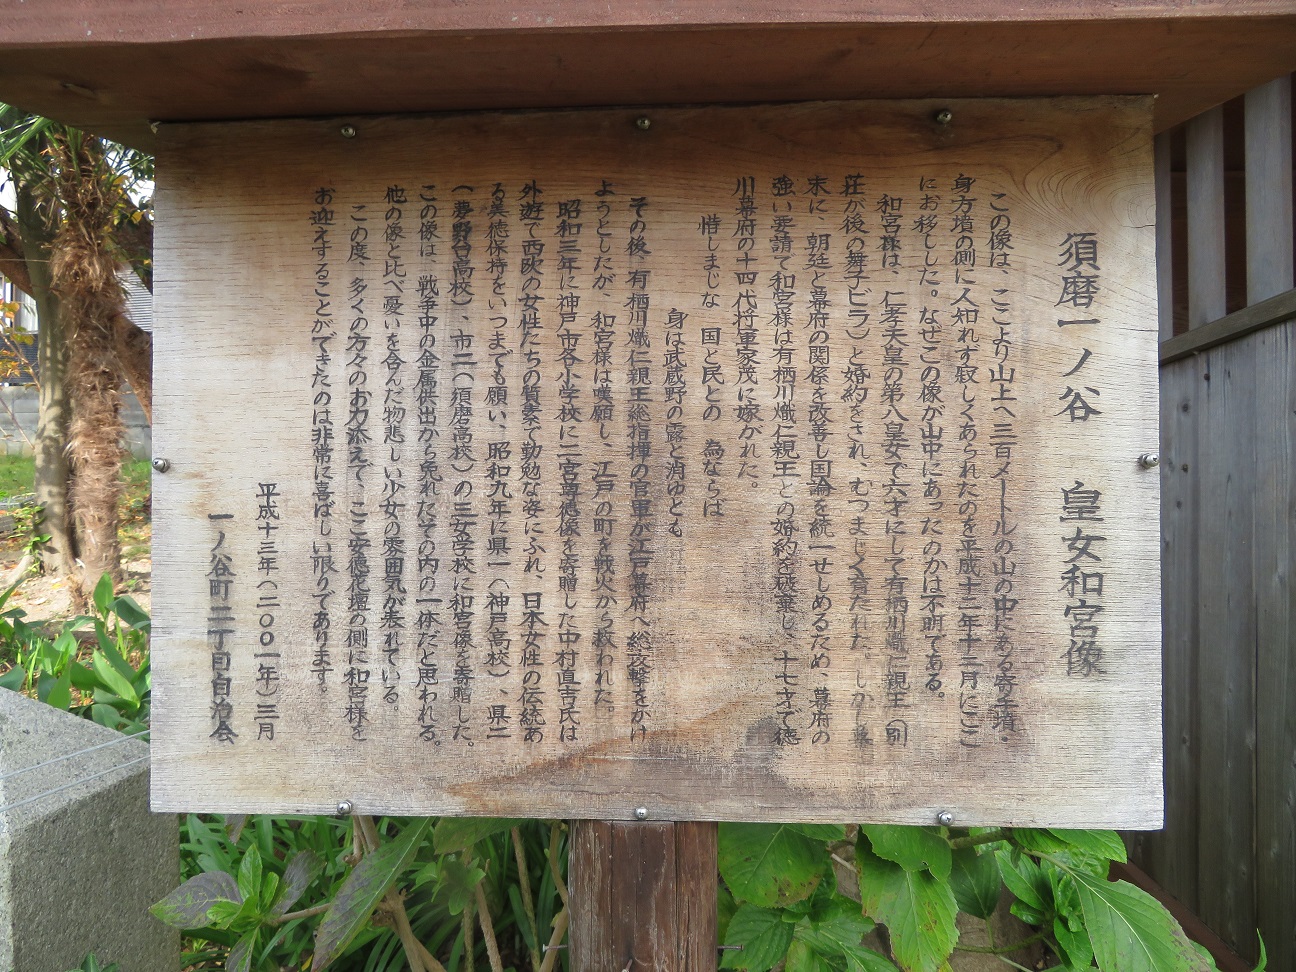 須磨一ノ谷　皇女和宮像
この像は、ここより山上へ三百メートルの山の中にある寄手墳・
身方墳の側に人知れず寂しくあられたのを平成十二年十二月にここ
にお移しした。なぜこの像が山中にあったのかは不明である。
和宮様は、仁孝天皇の第八皇女で六才にして有栖川熾仁親王（別
荘が後の舞子ビラ）と婚約をされ、むつまじく育たれた。しかし幕
末に、朝廷と幕府の関係を改善し国論を統一せしめるため、幕府の
強い要請で和宮様は有栖川熾仁親王との婚約を破棄し、十七才で徳
川幕府の十四代将軍家茂に嫁がれた。
惜しまじな　国と民との　為ならは
身は武蔵野の露と消ゆとも
その後、有栖川熾仁親王総指揮の官軍が江戸幕府へ総攻撃をかけ
ようとしたが、和宮様は嘆願し、江戸の町を戦火から救われた。
昭和三年に神戸市各小学校に二宮尊徳像を寄贈した中村直吉氏は
外遊で西欧の女性たちの質素で勤勉な姿にふれ、日本女性の伝統あ
る美徳保持をいつまでも願い、昭和九年に県一（神戸高校）、県二
（夢野台高校）、市二（須磨高校）の三女学校に和宮像を寄贈した。
この像は、戦争中の金属供出から免れたその内の一体だと思われる。
他の像と比べ憂いを含んだ物悲しい少女の雰囲気が表れている。
この度、多くの方々のお力添えで、ここ安徳花壇の側に和宮様を
お迎えすることができたのは非常に喜ばしい限りであります。
平成十三年（二〇〇一年）三月
一ノ谷町二丁目自治会